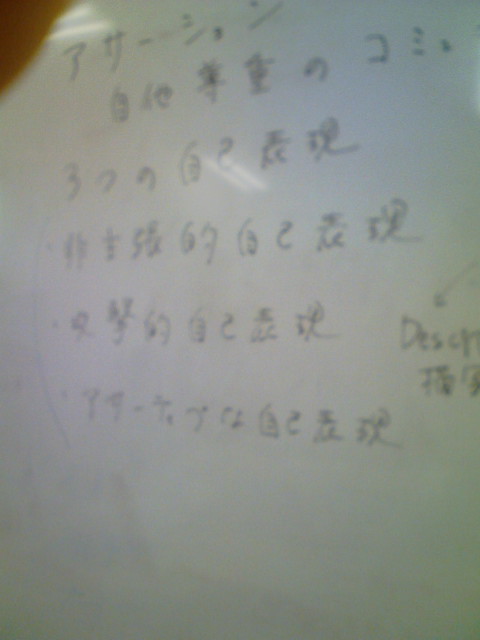 アサーション
自他尊重のコミュ
3つの自己表現
・非主張的自己表現
・攻撃的自己表現
・アサーティブな自己表現
Descr
描写